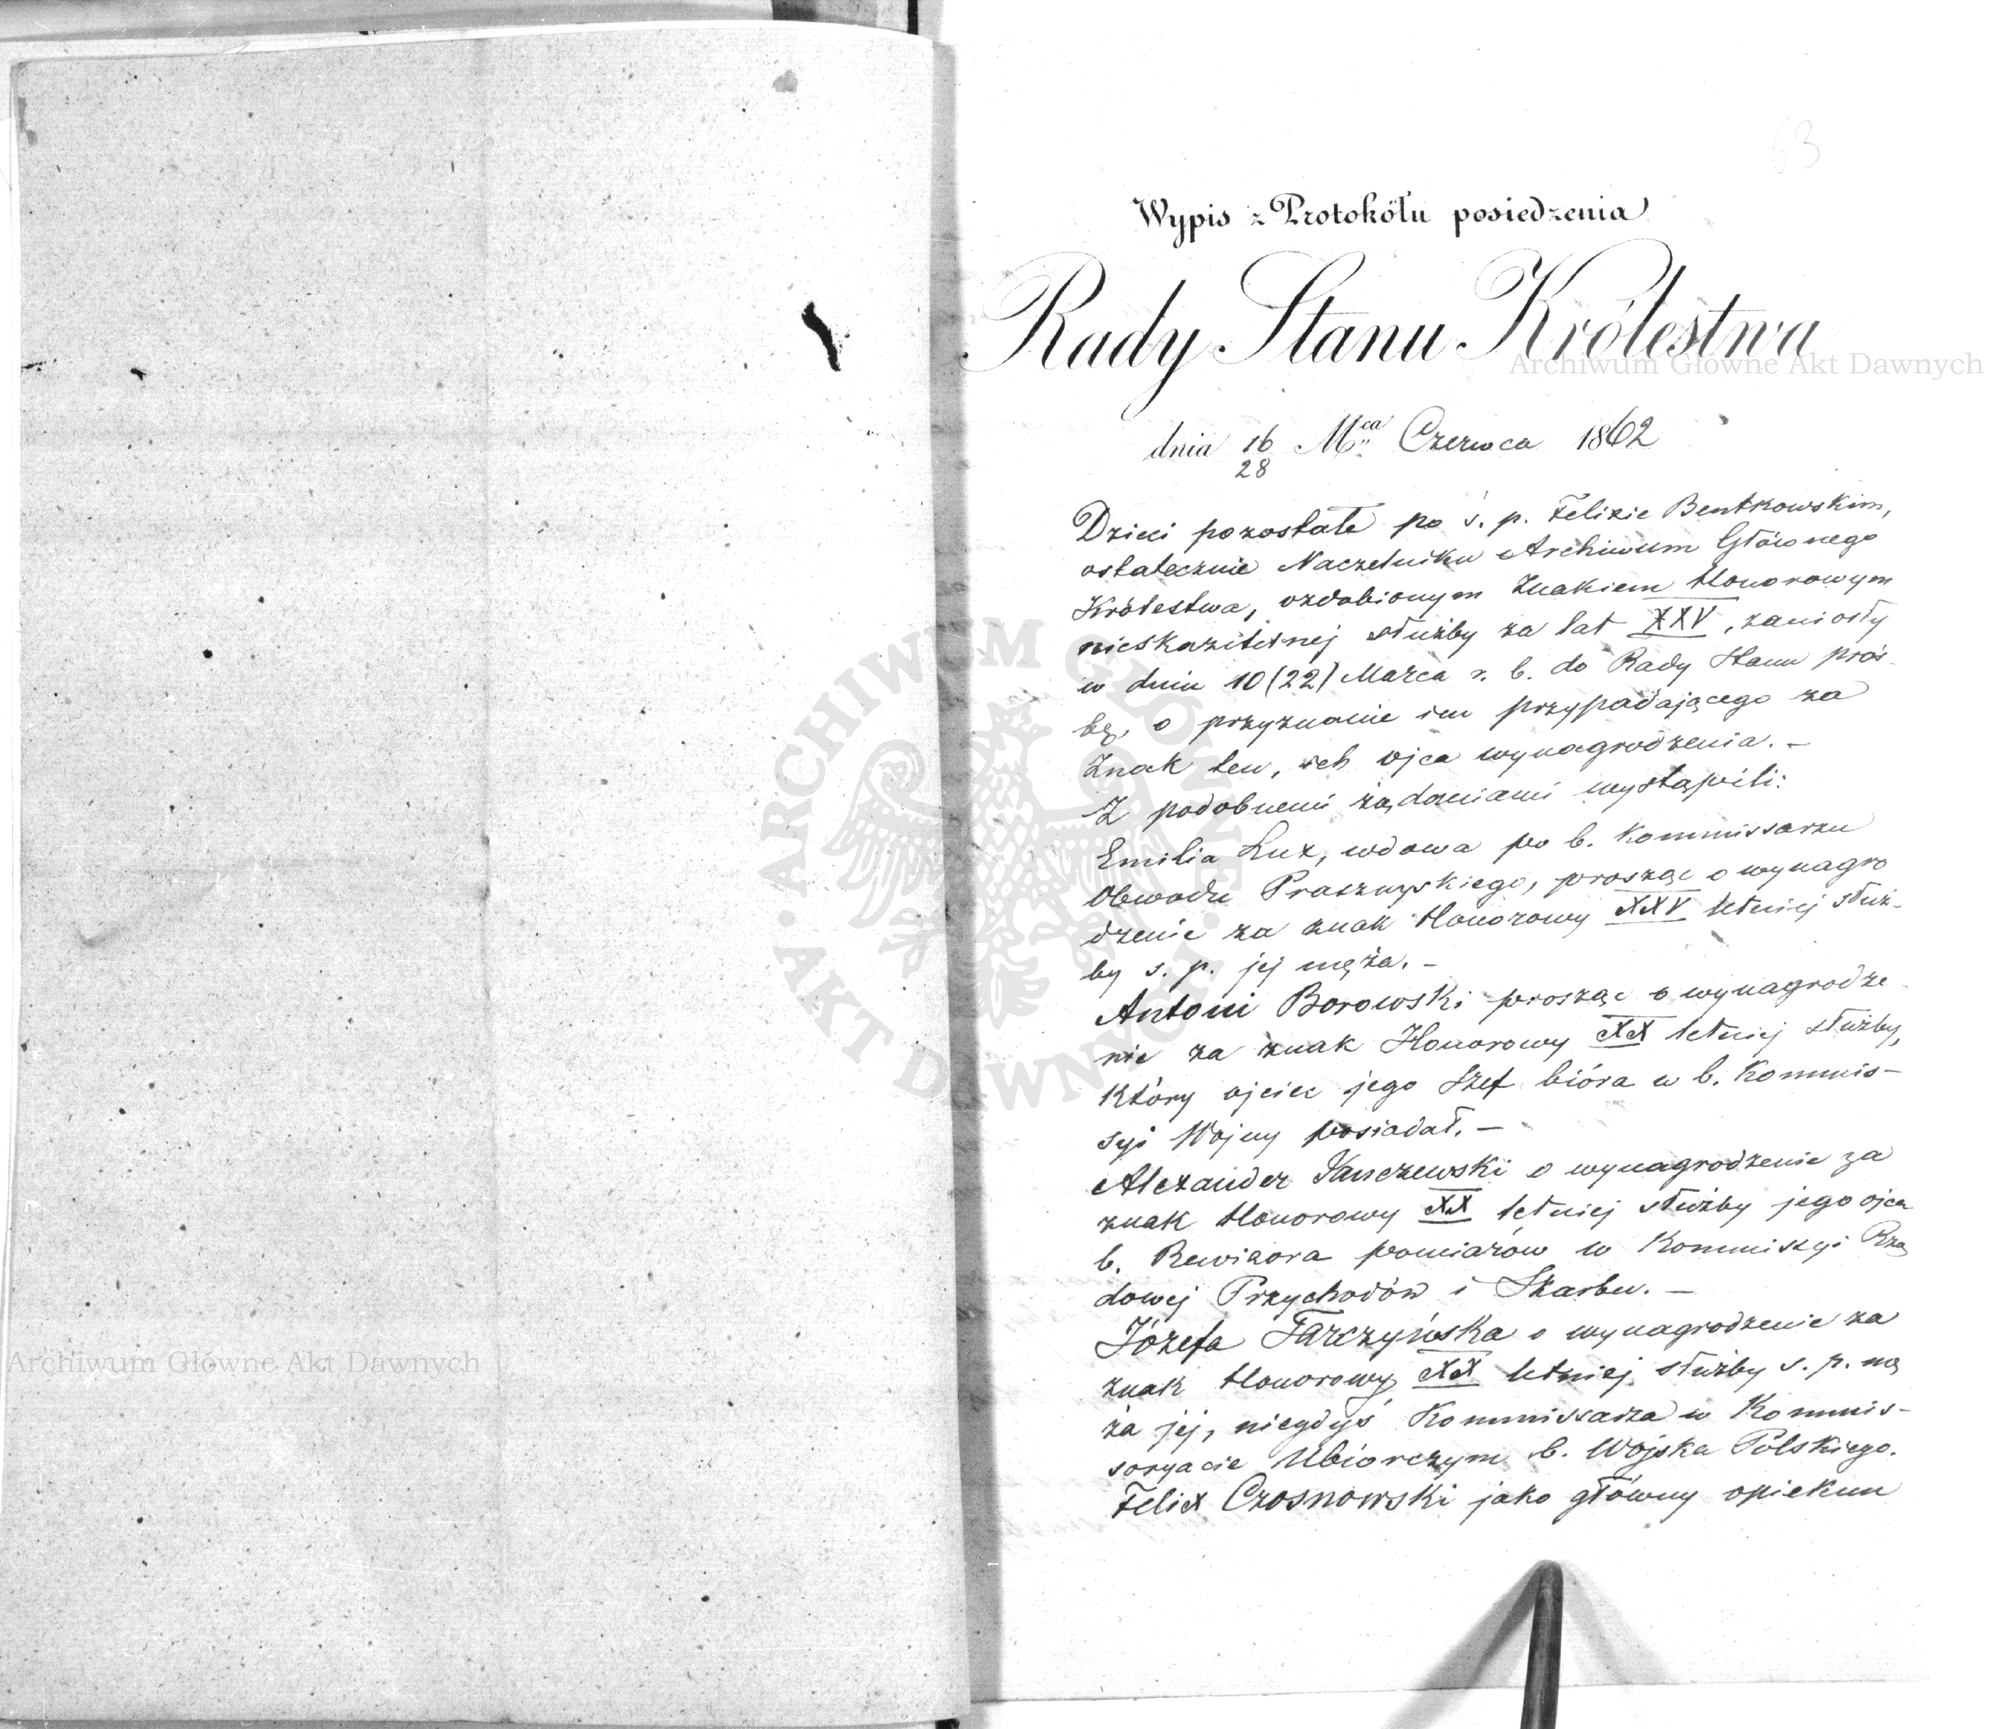 63
Wypis z Protokółu posiedzenia
Rady Stanu Królestwa
Archiwum Główne Akt Dawnych
dnia 16/28 Mca Czerwca 1862
Dzieci pozostałe po ś. p. Felixie Bentkowskim,
ostatecznie Naczelniku Archiwum Głównego
Królestwa, ozdobionym Znakiem Honorowym
nieskazitelnej służby za lat XXV, zaniosły
w dniu 10 (22) Marca r. b. do Rady Stanu proś-
bę, o przyznanie im przypadającego za
Znak ten, ich ojca wynagrodzenia. -
Z podobnemi żądaniami wystąpili:
Emilia Lux, wdowa po b. Kommissarzu
Obwodu Prasznyskiego, prosząc o wynagro
dzenie za znak Honorowy XXV letniej służ-
by ś. p. jej męża. -
Antoni Borowski prosząc o wynagrodze
nie za znak Honorowy XX letniej służby,
który ojciec jego Szef bióra w b. Kommis-
syi Wojny posiadał. -
Alexander Janczewski o wynagrodzenie za
znak Honorowy XX letniej służby jego ojca
b. Rewizora pomiarów w Kommissyi Rzą
dowej Przychodów i Skarbu. -
Józefa Tarczyńska o wynagrodzenie za
znak Honorowy XX letniej służby ś. p. mę
ża jej, niegdyś Kommissarza w Kommis-
soryacie Ubiorczym b. Wojska Polskiego.
Felix Czosnowski jako główny opiekun
ARCHIWUM GŁÓWNE AKT DAWNYCH
Archiwum Główne Akt Dawnych